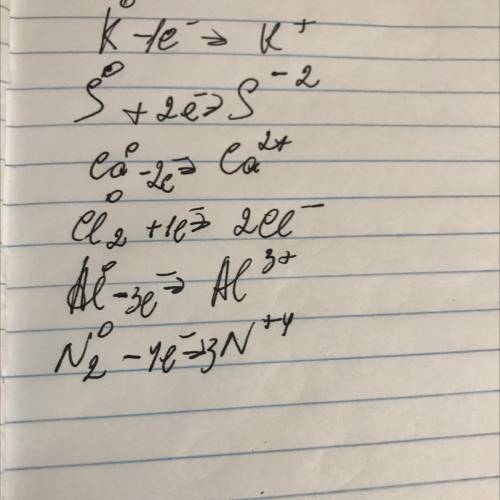 K⁰ -1e⁻ → K⁺
S⁰ +2e⁻ → S⁻²
Ca⁰ -2e⁻ → Ca²⁺
Cl₂⁰ +1e⁻ → 2Cl⁻
Al⁰ -3e⁻ → Al³⁺
N₂⁰ -4e⁻ → 3N⁺⁴